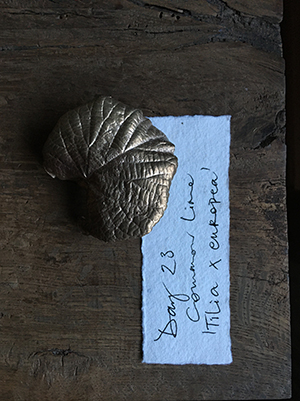 Day 23
Common Lime
'Tilia x europea'